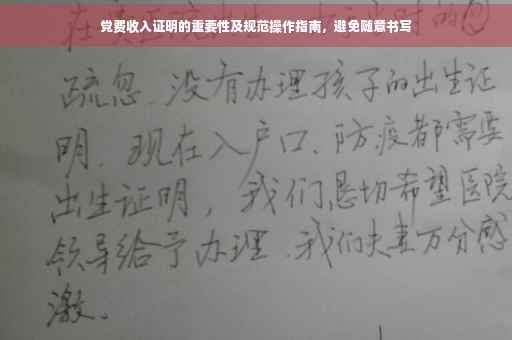 党费收入证明的重要性及规范操作指南，避免随意书写
疏忽、没有办理孩子的出生证
明、现在入户口、防疫都需要
出生证明，我们恳切希望医院
领导给予办理、我们夫妻万分感
激。